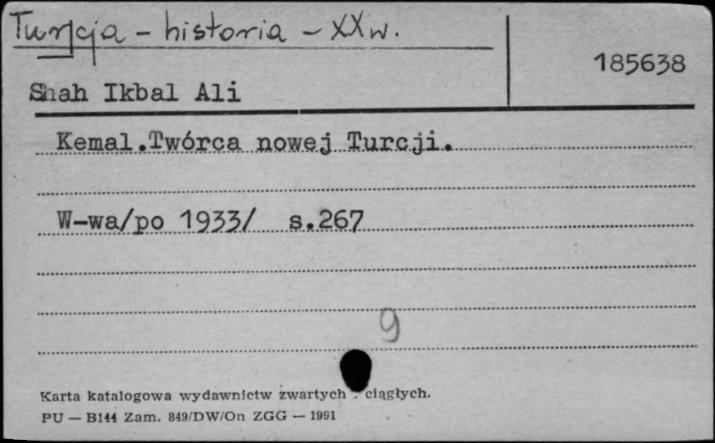 Turcja - historia - XXw.
185638
Shah Ikbal Ali
Kemal.Twórca nowej Turcji.
W-wa/po 1933/ s.267
9
Karta katalogowa wydawnictw zwartych ciągłych.
PU — B144 Zam. 849/DW/On ZGG — 1991